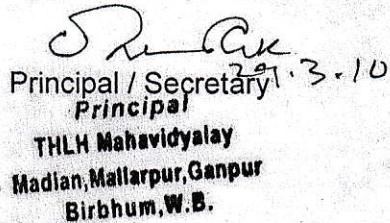 Principal / Secretary
Principal
THLH Mahavidyalay
Madian,Mallarpur,Ganpur
Birbhum,W.B.